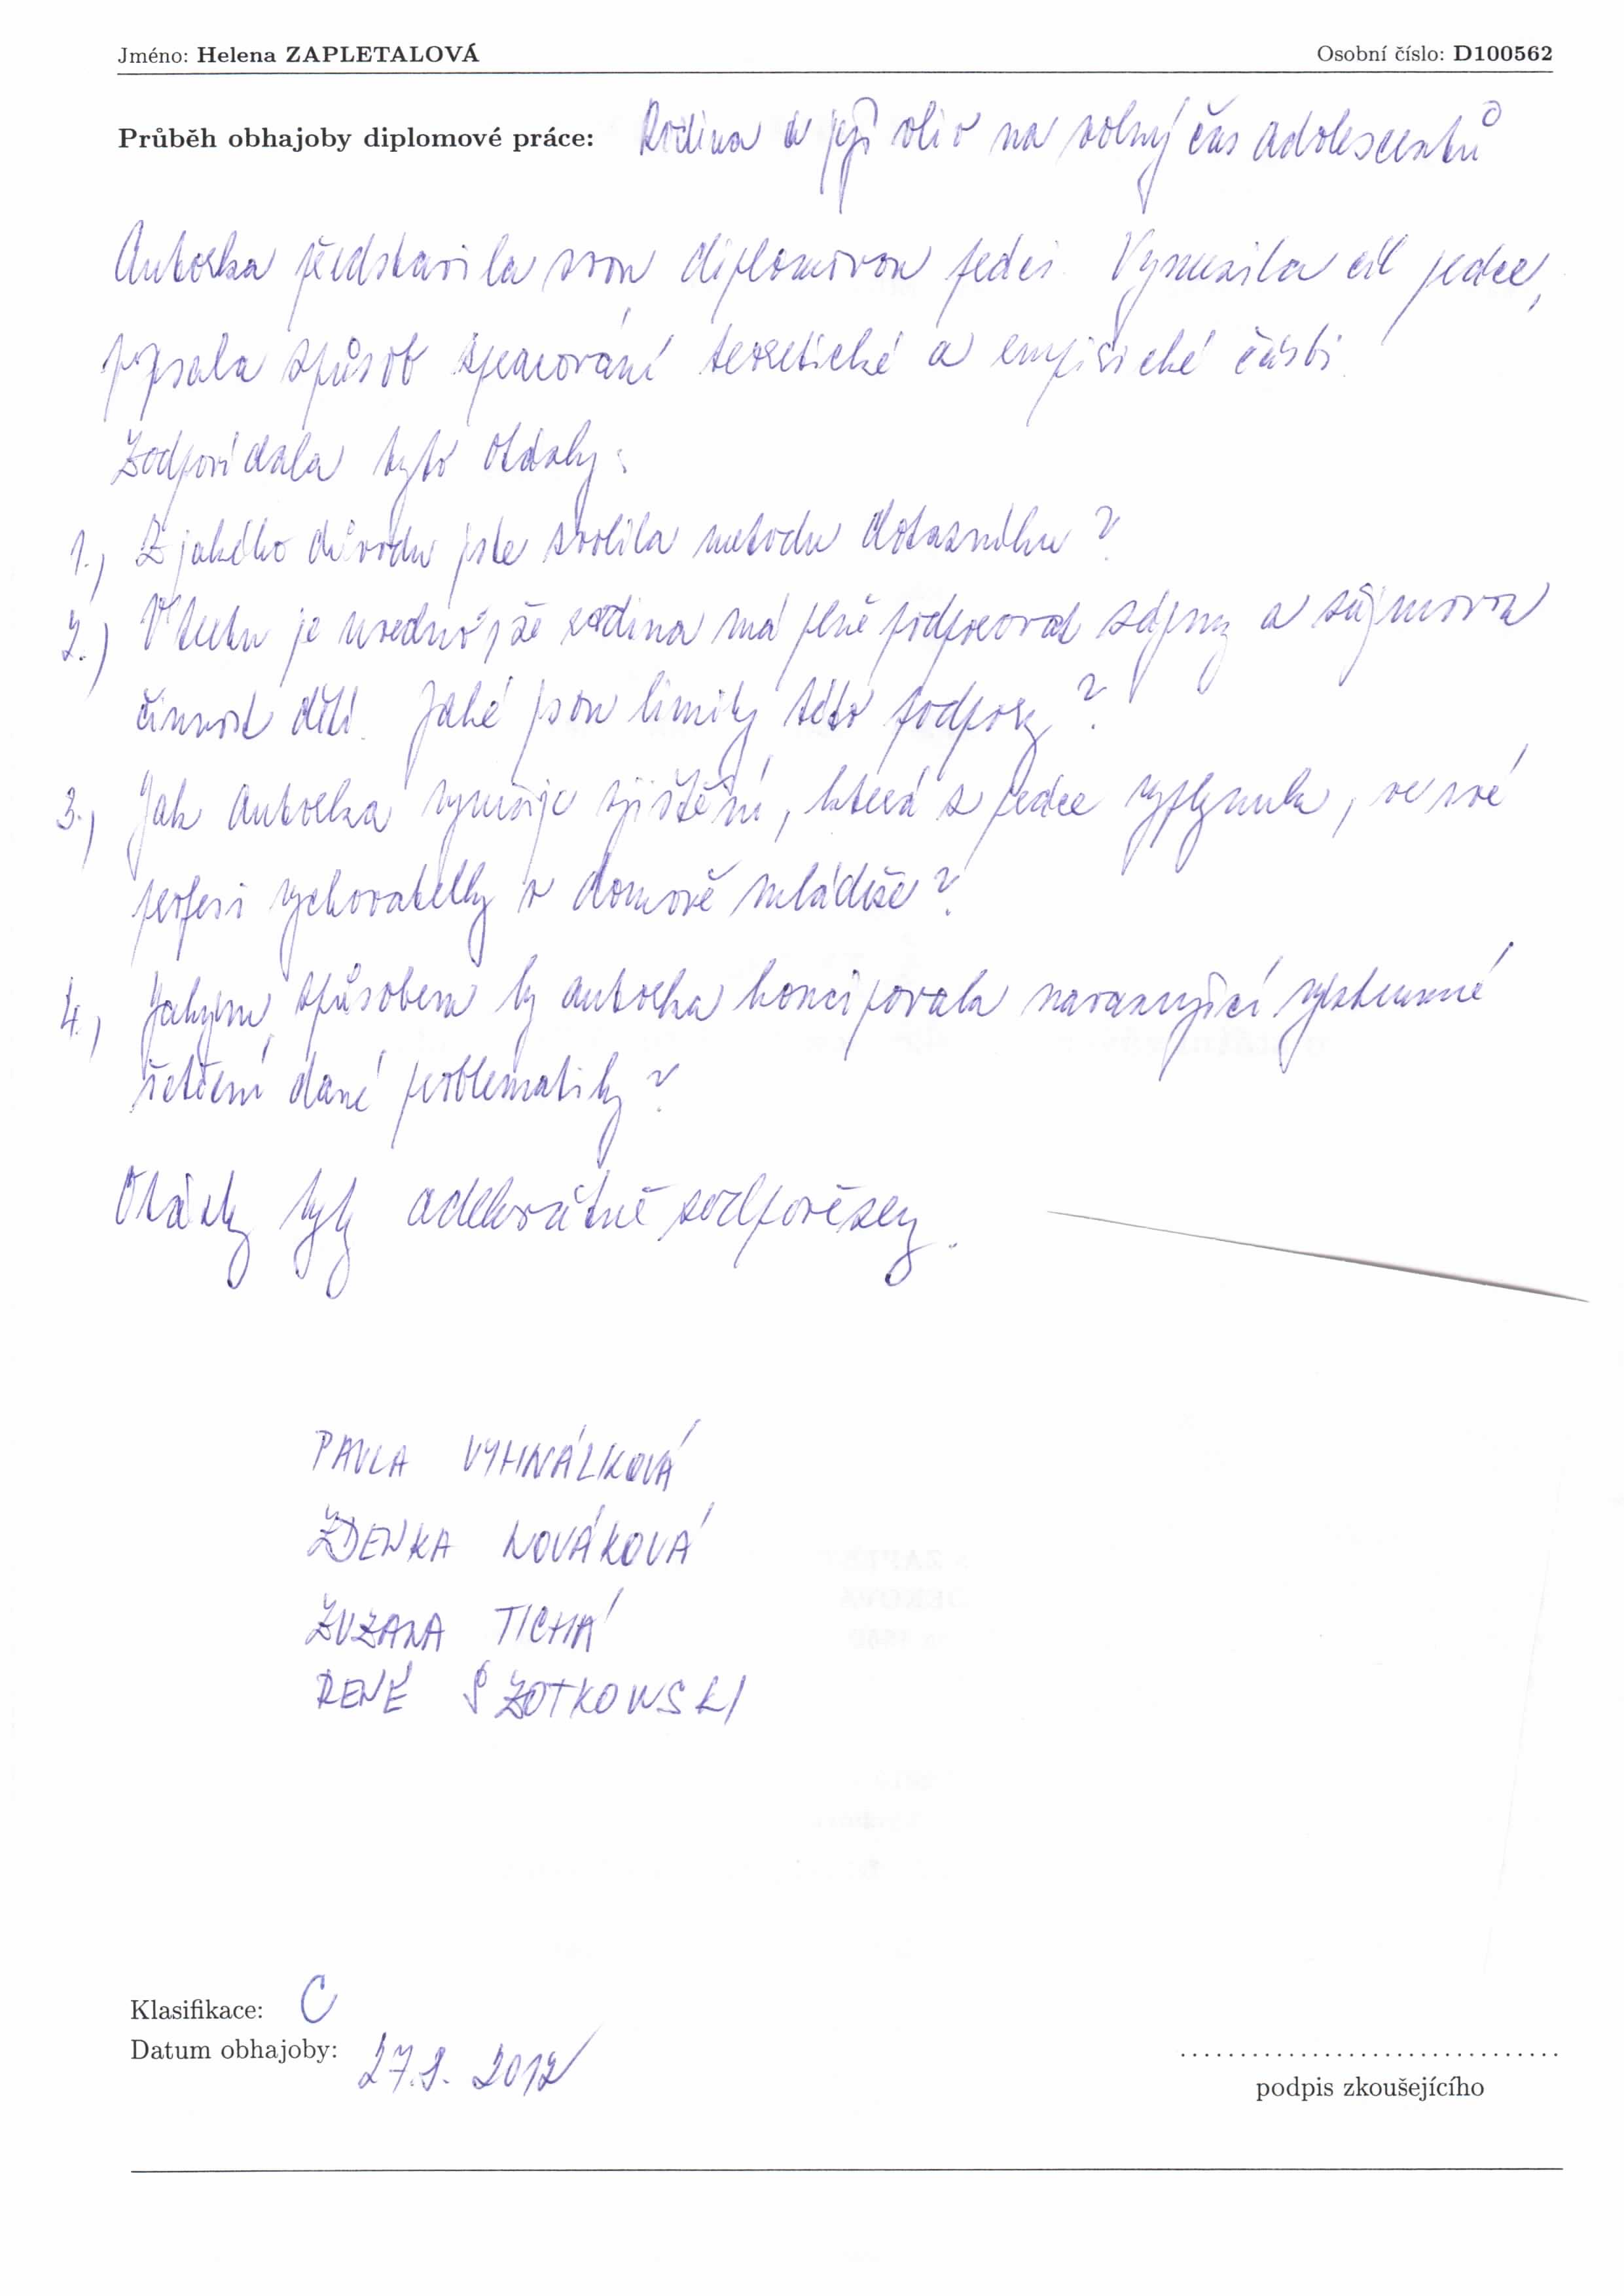 Jméno: Helena ZAPLETALOVÁ Osobní číslo: D100562
Průběh obhajoby diplomové práce: Rodina a její vliv na volný čas adolescentů
Autorka představila svou diplomovou práci. Vymezila cíl práce,
popsala způsob zpracování teoretické a empirické části.
Zodpovídala tyto otázky:
1.) Z jakého důvodu jste zvolila metodu dotazníku?
2.) V textu je uvedno, že rodina má plně podporovat zájmy a zájmovou
činnost dětí. Jaké jsou limity této podpory?
3.) Jak autorka využije zjištění, která z práce vyplynula, ve své
profesi vychovatelky v domově mládeže?
4.) Jakým způsobem by autorka koncipovala navazující výzkumné
šetření dané problematiky?
Otázky byly adekvátně zodpovězeny.
PAVLA VYHNÁLKOVÁ
ZDENKA NOVÁKOVÁ
ZUZANA TICHÁ
RENÉ SZOTKOWSKI
Klasifikace: C
Datum obhajoby: 27. 2012
podpis zkoušejícího